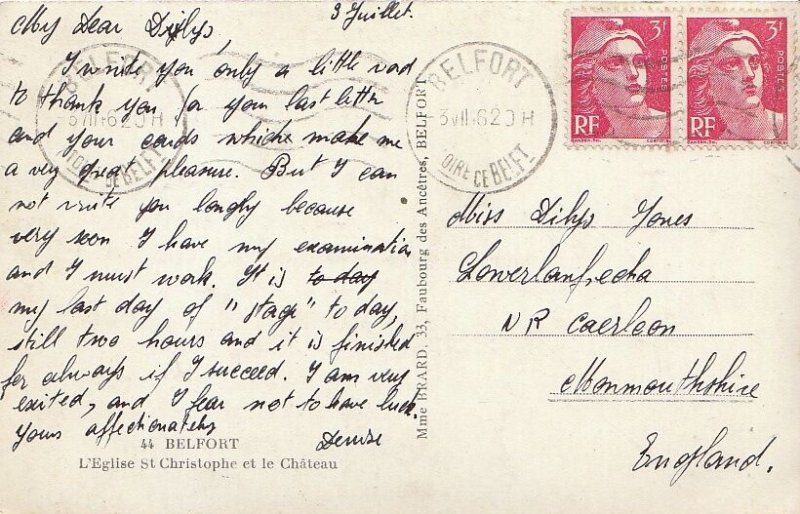 3 Juillet.
My Dear Dilys,
I write you only a little word
to thank you for your last letter
and your cards which make me
a very great pleasure. But I can
not write you longly because
very soon I have my examination
and I must work. It is to day
my last day of "stage" to day,
still two hours and it is finished
for always if I succeed. I am very
exited, and I fear not to have luck.
Yours affectionately
Denise
44 BELFORT
L'Eglise St Christophe et le Château
Mme BRARD, 33, Faubourg des Ancêtres, BELFORT
BELFORT
BELFORT
3 VII
3F
POSTES
RF
3F
POSTES
RF
Miss Dilys Jones
NR Caerleon
Monmouthshire
England.